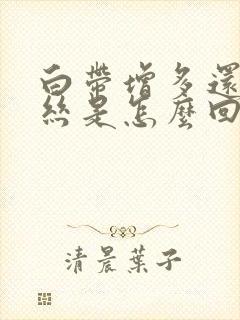 白帶增多還
絲是怎麼回
清晨葉子